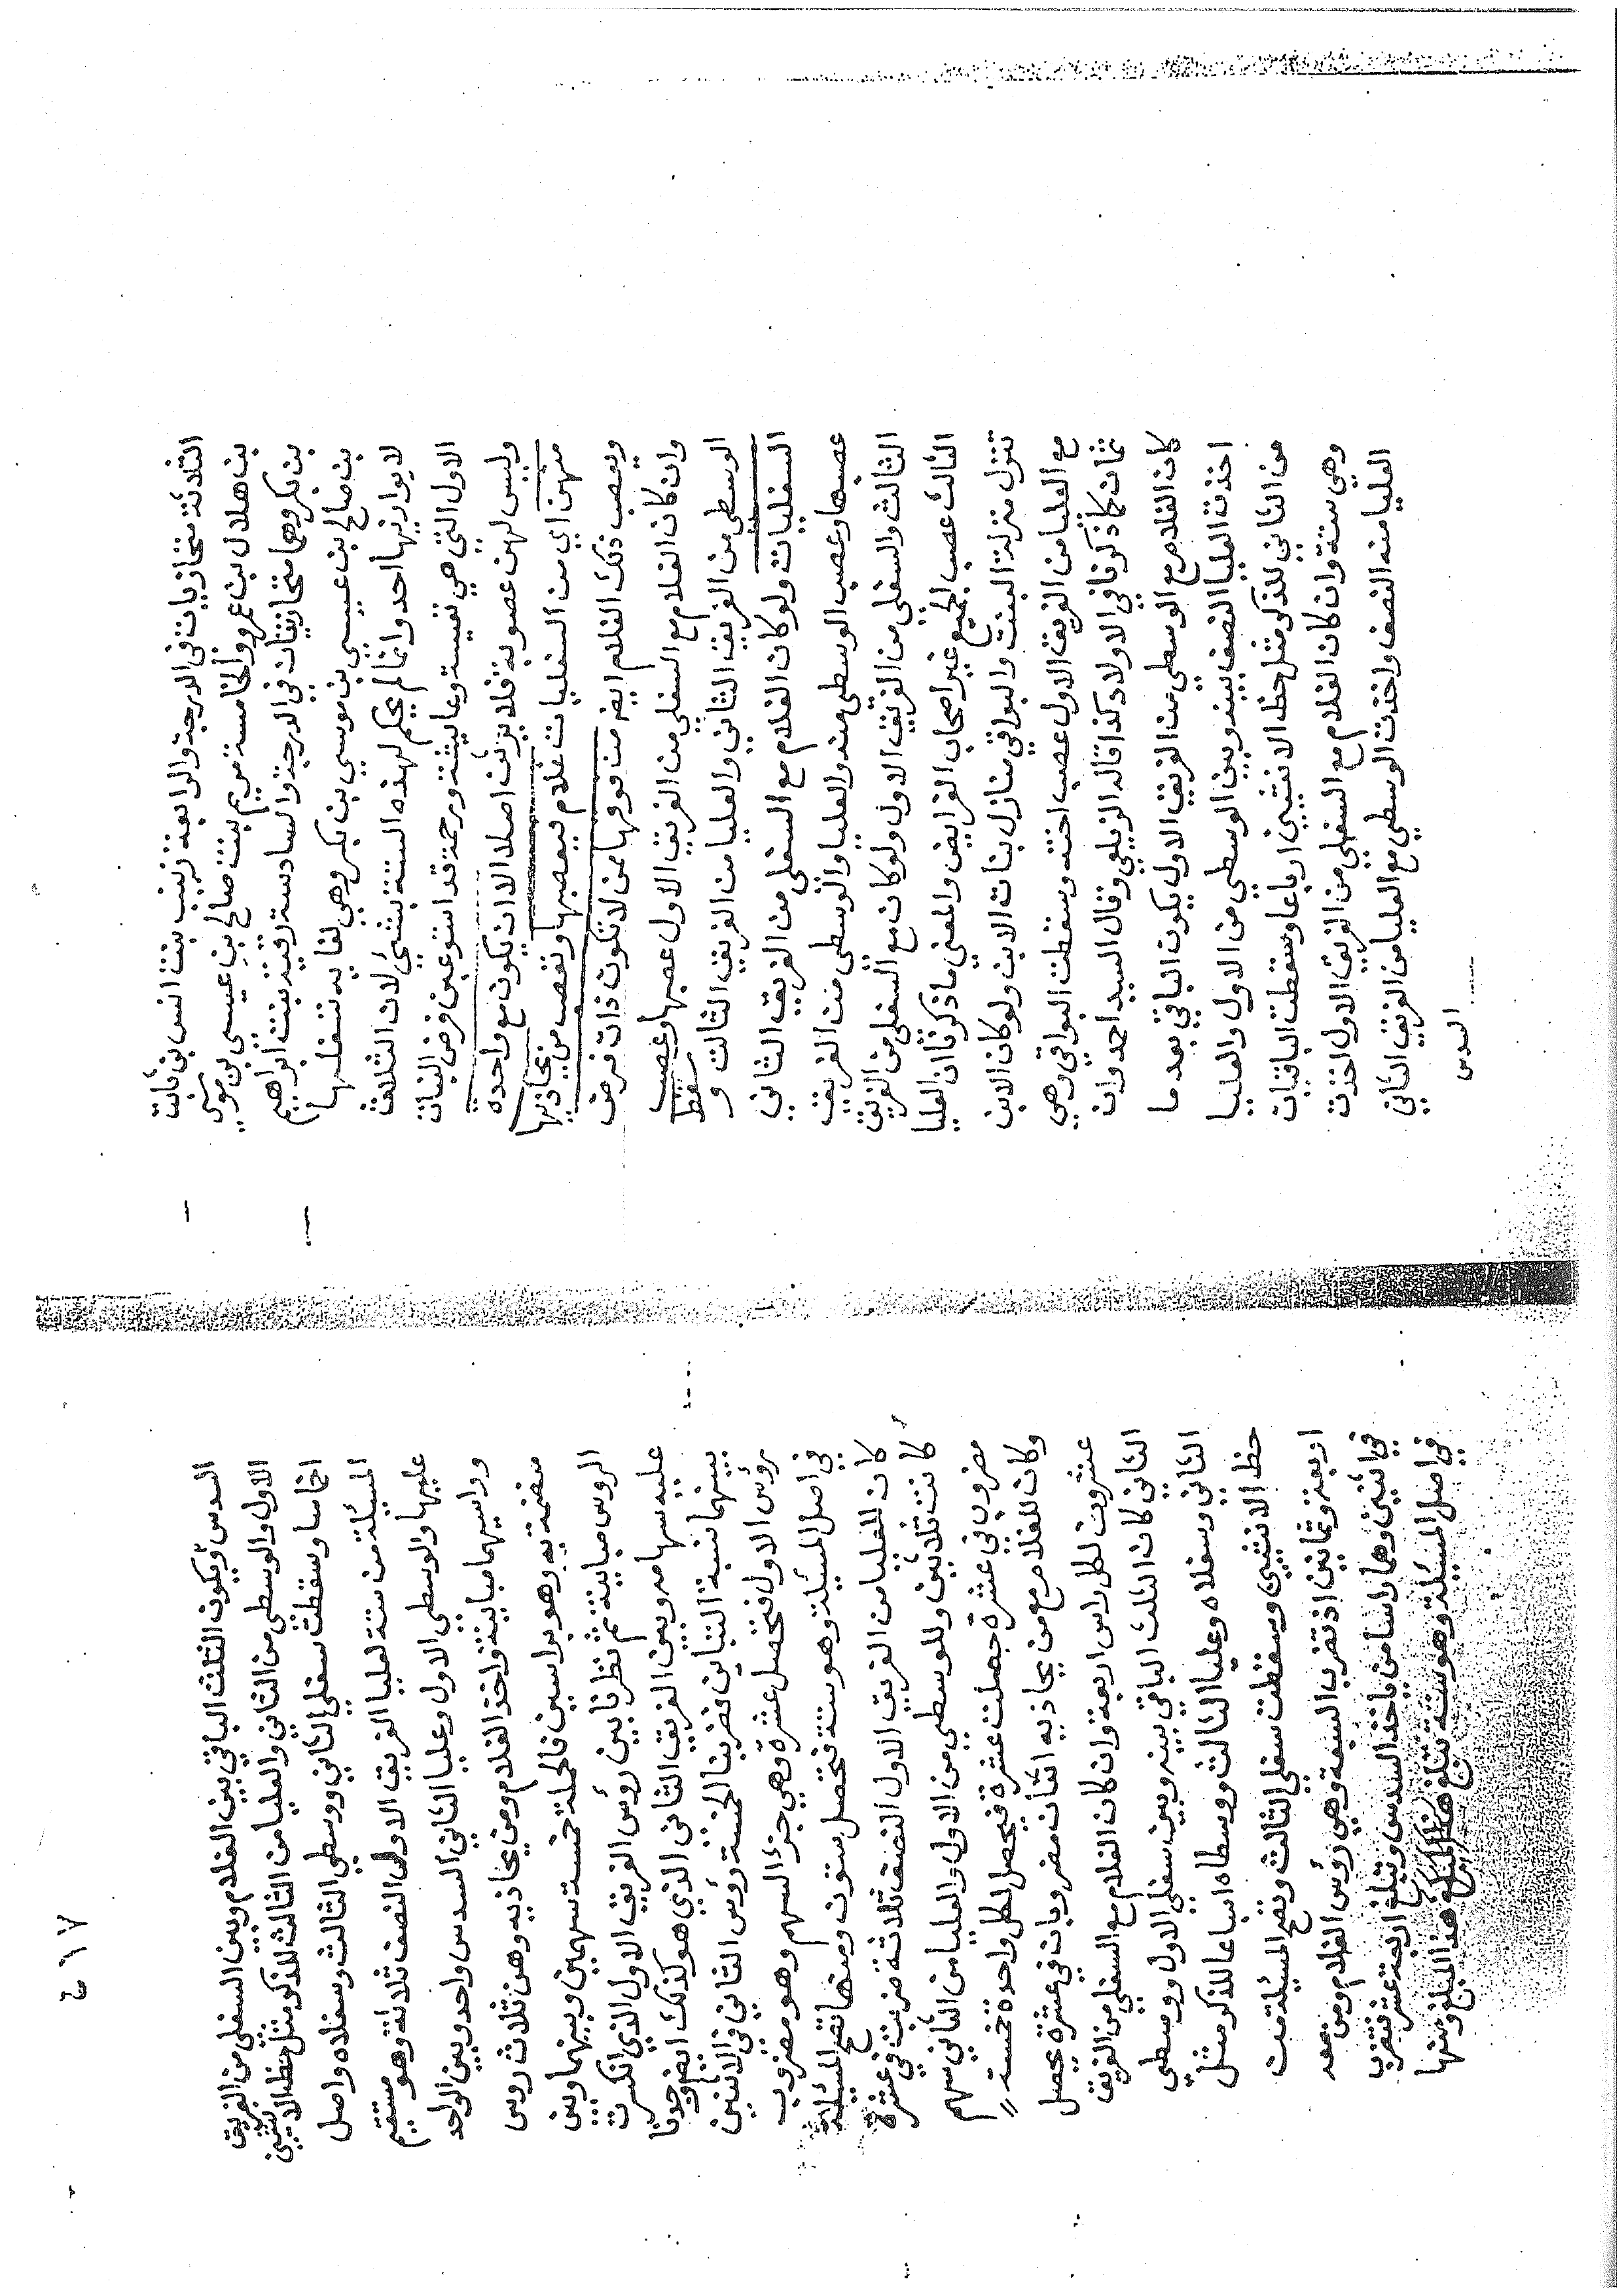 الثلاثة متحاذيات في الدرجة والرابعة زينب بنت انس بن ثابت
بن هلال بن عمرو والخامسة مريم بنت صالح بن عيسى بن موسى
بن بكر وهما متحاذيتان في الدرجة والسادسة رقية بنت ابراهيم
بن صالح بن عيسى بن موسى بن بكر وهي لغايه تسفلها
لا يوازيها احد وانما لم يحكم لهذه الستة بشئ لان الثلاث
الاول التي هي نفيسة وعايشة ورحمة قد استوعبن فرض البنات
وليس لهن عصوبة فلا يرثن اصلا الا ان يكون مع واحدة
منهن اي من السفليات غلام فيعصبها ويعصب من يحاذيها
ويعصب ذلك الغلام ايضا من فوقها ممن لا تكون ذات فرض
وان كان الغلام مع السفلي من الفريق الاول عصبها وعصب
الوسطى من الفريق الثاني والعليا من الفريق الثالث وسقط
السفليات ولو كان الغلام مع السفلى من الفريق الثاني
عصبها وعصب الوسطى منه والعليا والوسطى من الفريق
الثالث والسفلى من الفريق الاول ولو كان مع السفلى من الفريق
الثالث عصب الجميع غير اصحاب الفرايض والمعني ما ذكرنا ان العليا
تنزل منزلة البنت والبواقي منازل بنات الابن ولو كان الابن
مع العليا من الفريق الاول عصب اخته وسقطت البواقي وهي
ثمان كما ذكرنا في الاولاد كذا قاله الزيلعي وقال السيد احمد وان
كان الغلام مع الوسطي من الفريق الاول يكون الباقي بعد ما
اخذت العليا النصف بينه وبين الوسطي من الاول والعليا
من الثاني للذكر مثل حظ الانثيين ارباعا وسقطت الباقيات
وهي ستة وان كان الغلام مع السفلي من الفريق الاول اخذت
العليا منه النصف واخذت الوسطي مع العليا من الفريق الثاني
السدس
٧١ ع
السدس ويكون الثلث الباقي بين الغلام وبين السفلى من الفريق
الاول والوسطي من الثاني والعليا من الثالث للذكر مثل حظ الانثيين
اخماسا وسقطت سفلي الثاني ووسطي الثالث وسفلاه واصل
المسئلة من ستة لعليا الفريق الاول النصف ثلاثة وهو مستقيم
عليها والوسطي الاول وعليا الثاني السدس واحد وبين الواحد
وراسيهما مباينة واخذ الغلام ومن يحاذيه وهن ثلاث روس
منضمة به وهو براسين فالجملة خمسة سهمين وبينهما وبين
الروس مباينة ثم نظرنا بين رؤس الفريق الاول الذي انكسرت
عليه سهامه وبين الفريق الثاني الذي هو كذلك ايضا فوجدنا
بينهما نسبة التباين فضربنا الخمسة رؤس الثاني في الاثنين
رؤس الاول فتحصل عشرة وهي جزأ السهم وهو مضروب
في اصل المسئلة وهو ستة فتحصل ستون ومنها تصح المسئلة
كان للعليا من الفريق الاول النصف ثلاثة ضربت في عشرة
كانت ثلاثين وللوسطي من الاول والعليا من الثاني سهم
مضروب في عشرة جعلت عشرة فيحصل لكل واحدة خمسة
وكان للغلام مع من يحاذيه اثنان مضروبات في عشرة يحصل
عشرون لكل راس اربعة وان كان الغلام مع السفلي من الفريق
الثاني كان الثلث الباقي بينه وبين سفلي الاول ووسطي
الثاني وسفلاه وعليا الثالث ووسطاه اسباعا للذكر مثل
حظ الانثيين وسقطت سفلي الثالث وتصح المسئلة من
اربعة وثمانين اذ تضرب السبعة وهي رؤس الغلام ومن معه
في اثنين وهما راسا من ياخذ السدس وتبلغ اربعة عشر فتضرب
في اصل المسئلة وهو ستة تبلغ هذا المبلغ ومنها